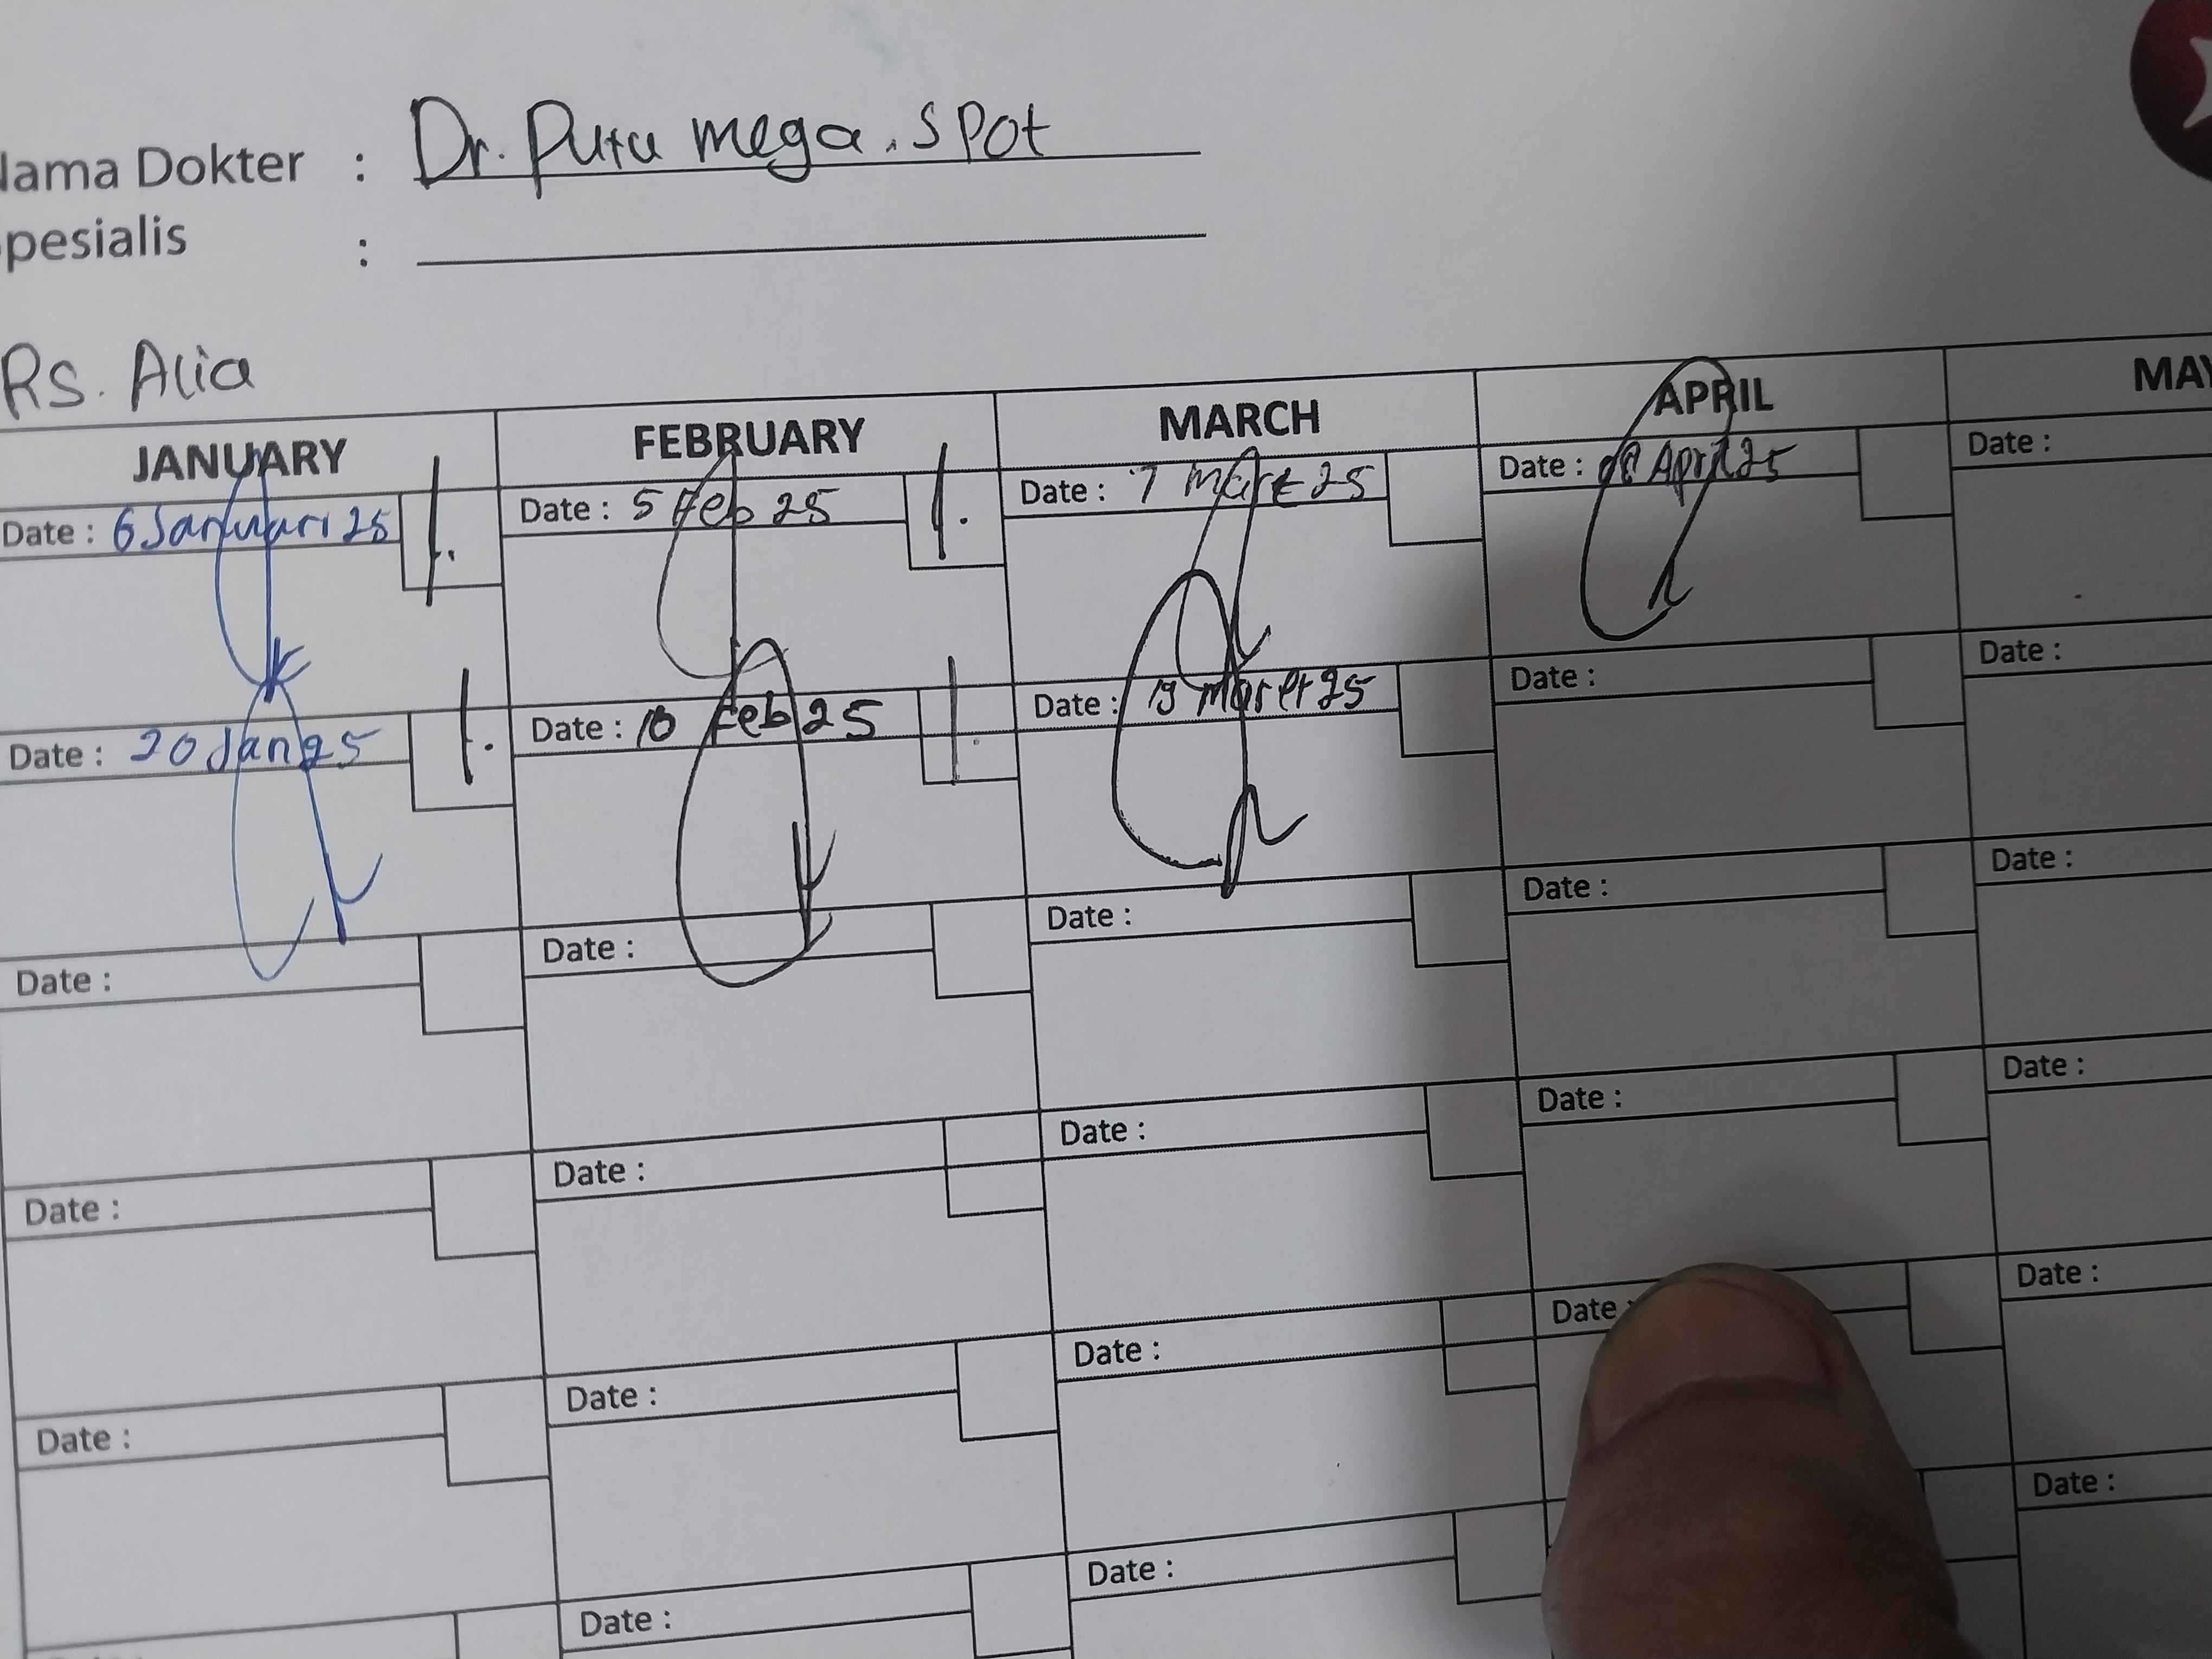 Nama Dokter : Dr. Putu mega. SPOT
Spesialis :
Rs. Alia
JANUARY FEBRUARY MARCH APRIL MAY
Date : 6 Januari 25 Date : 5 Feb 25 Date : 7 Maret 25 Date : April 25 Date :
Date : 20 Jan 25 Date : 10 Feb 25 Date : 19 Maret 25 Date : Date :
Date : Date : Date : Date : Date :
Date : Date : Date : Date : Date :
Date : Date : Date : Date : Date :
Date : Date : Date :